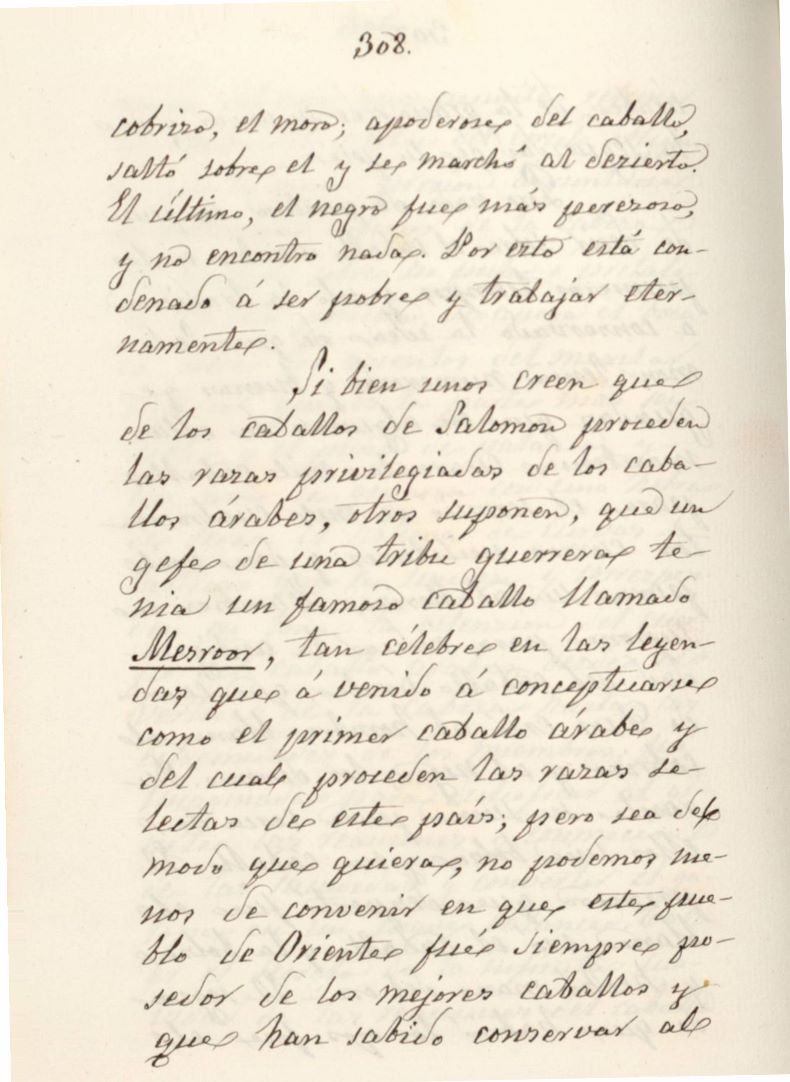 308.
cobrizo, el moro; apoderose del caballo,
saltó sobre el y se marchó al dezierto.
El último, el negro fue más perezoso,
y no encontro nada. Por esto está con-
denado á ser pobre y trabajar eter-
namente.
Si bien unos creen que
de los caballos de Salomon proceden
las razas privilegiadas de los caba-
llos árabes, otros suponen, que un
gefe de una tribu guerrera te-
nia un famoso caballo llamado
Mesroor, tan célebre en las leyen-
das que á venido á conceptuarse
como el primer caballo árabe y
del cual proceden las razas se-
lectas de este país; pero sea del
modo que quiera, no podemos me-
nos de convenir en que este pue-
blo de Oriente fué siempre po-
sedor de los mejores caballos y
que han sabido conservar al